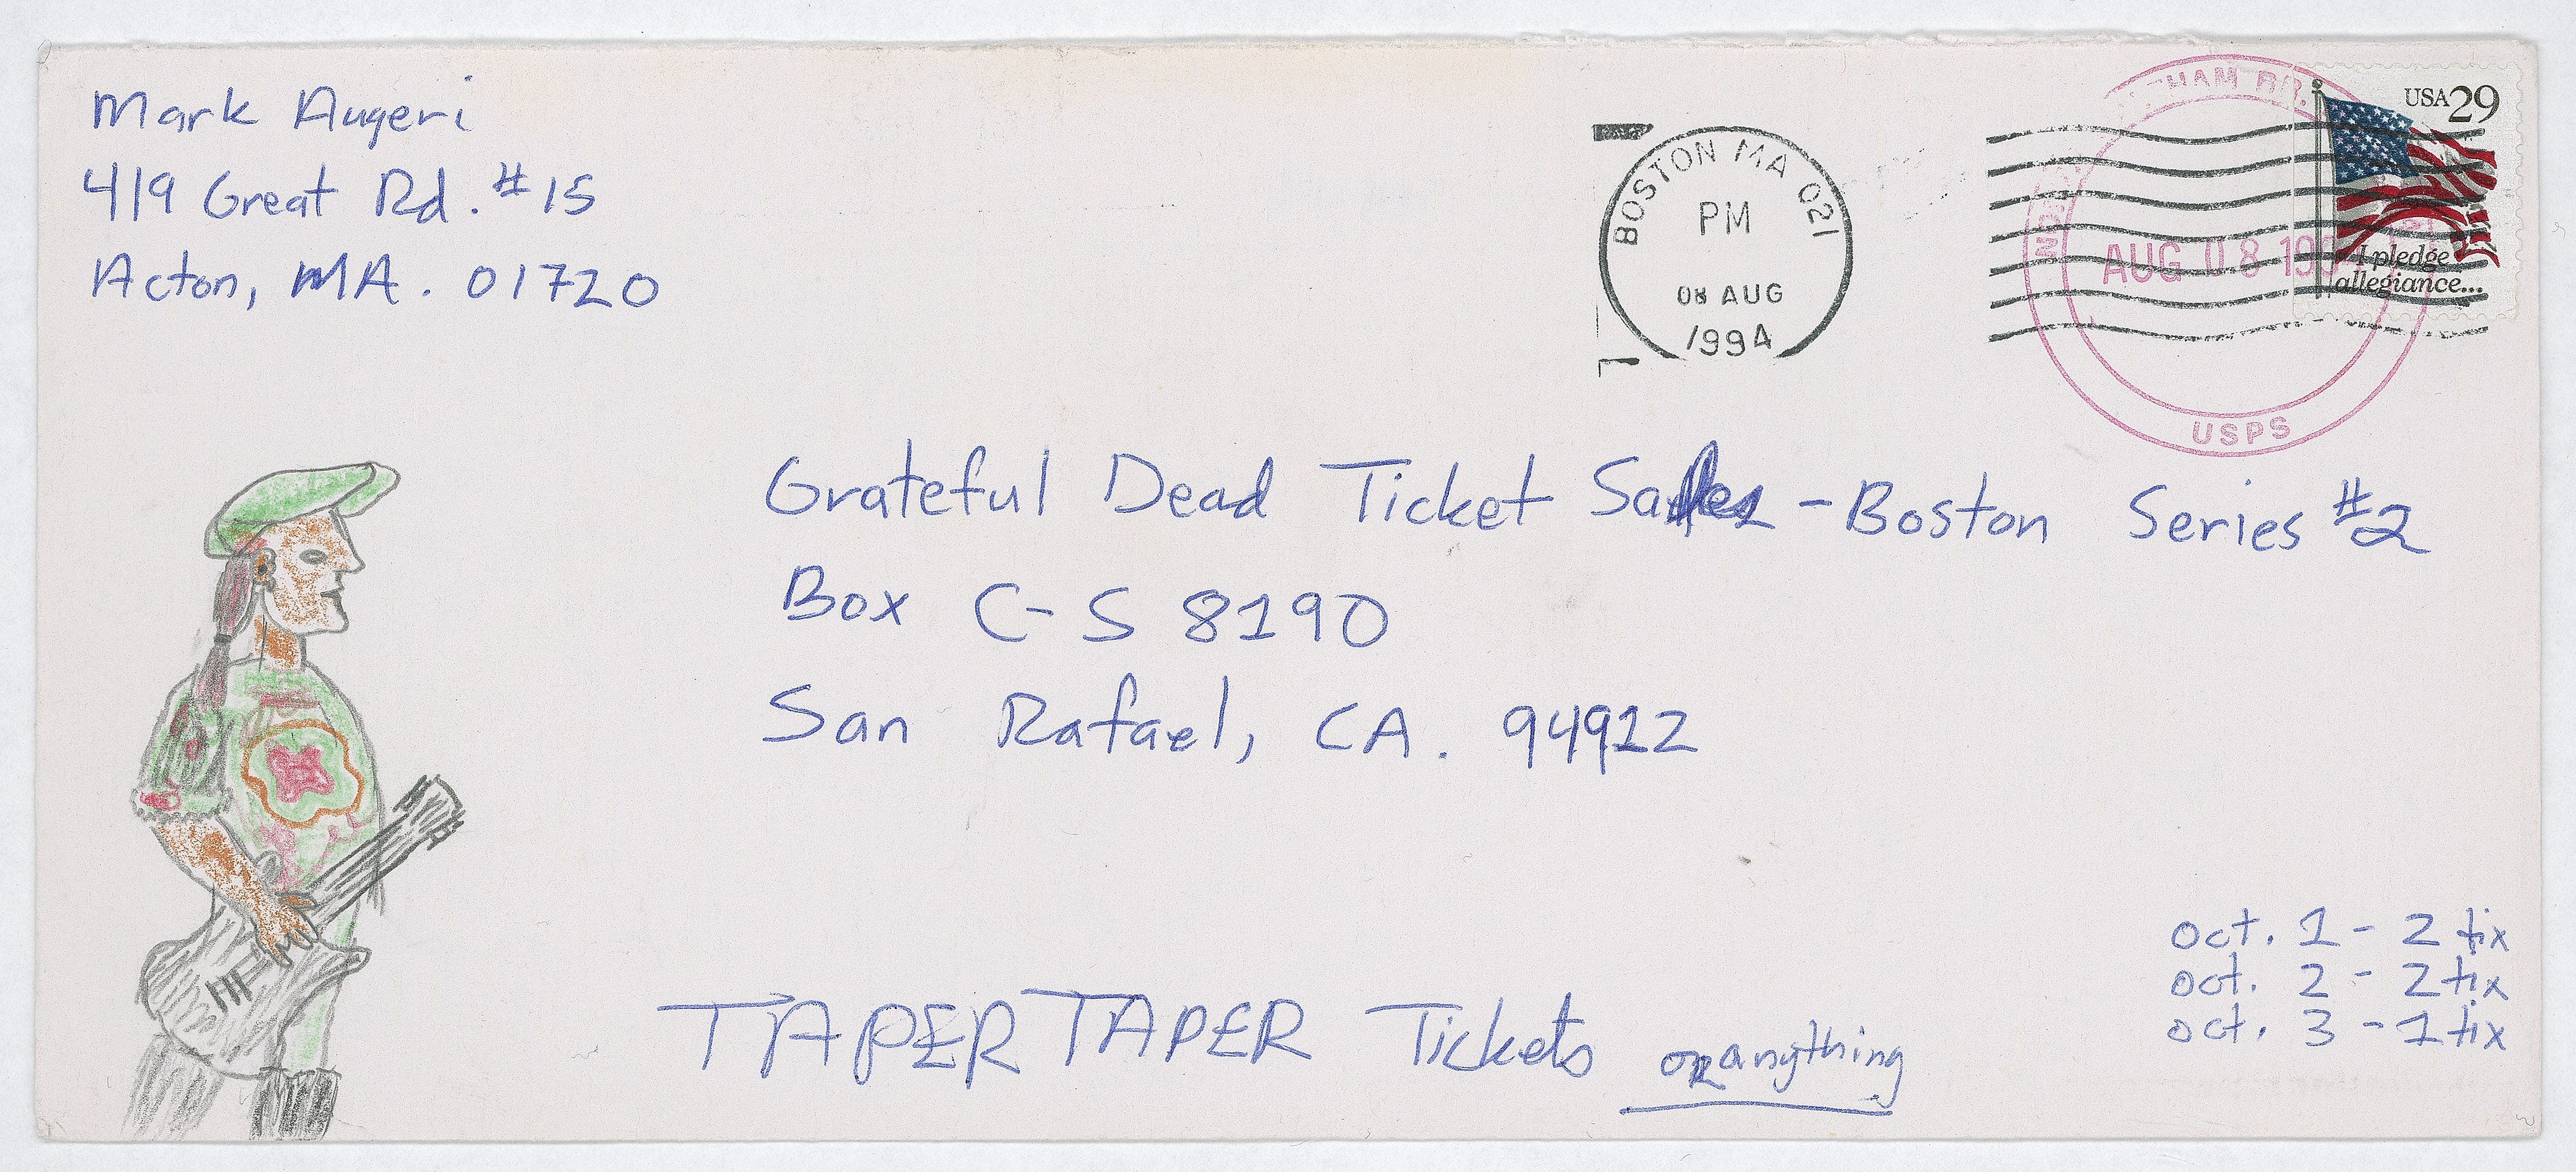 Mark Augeri
419 Great Rd. #15
Acton, MA. 01720
BOSTON MA 021
PM
08 AUG
1994
HAM BR.
AUG 08 199
USPS
USA 29
I pledge
allegiance...
Grateful Dead Ticket Sales - Boston Series #2
Box C-S 8190
San Rafael, CA. 94912
oct. 1 - 2 tix
oct. 2 - 2 tix
oct. 3 - 1 tix
TAPER TAPER Tickets or anything